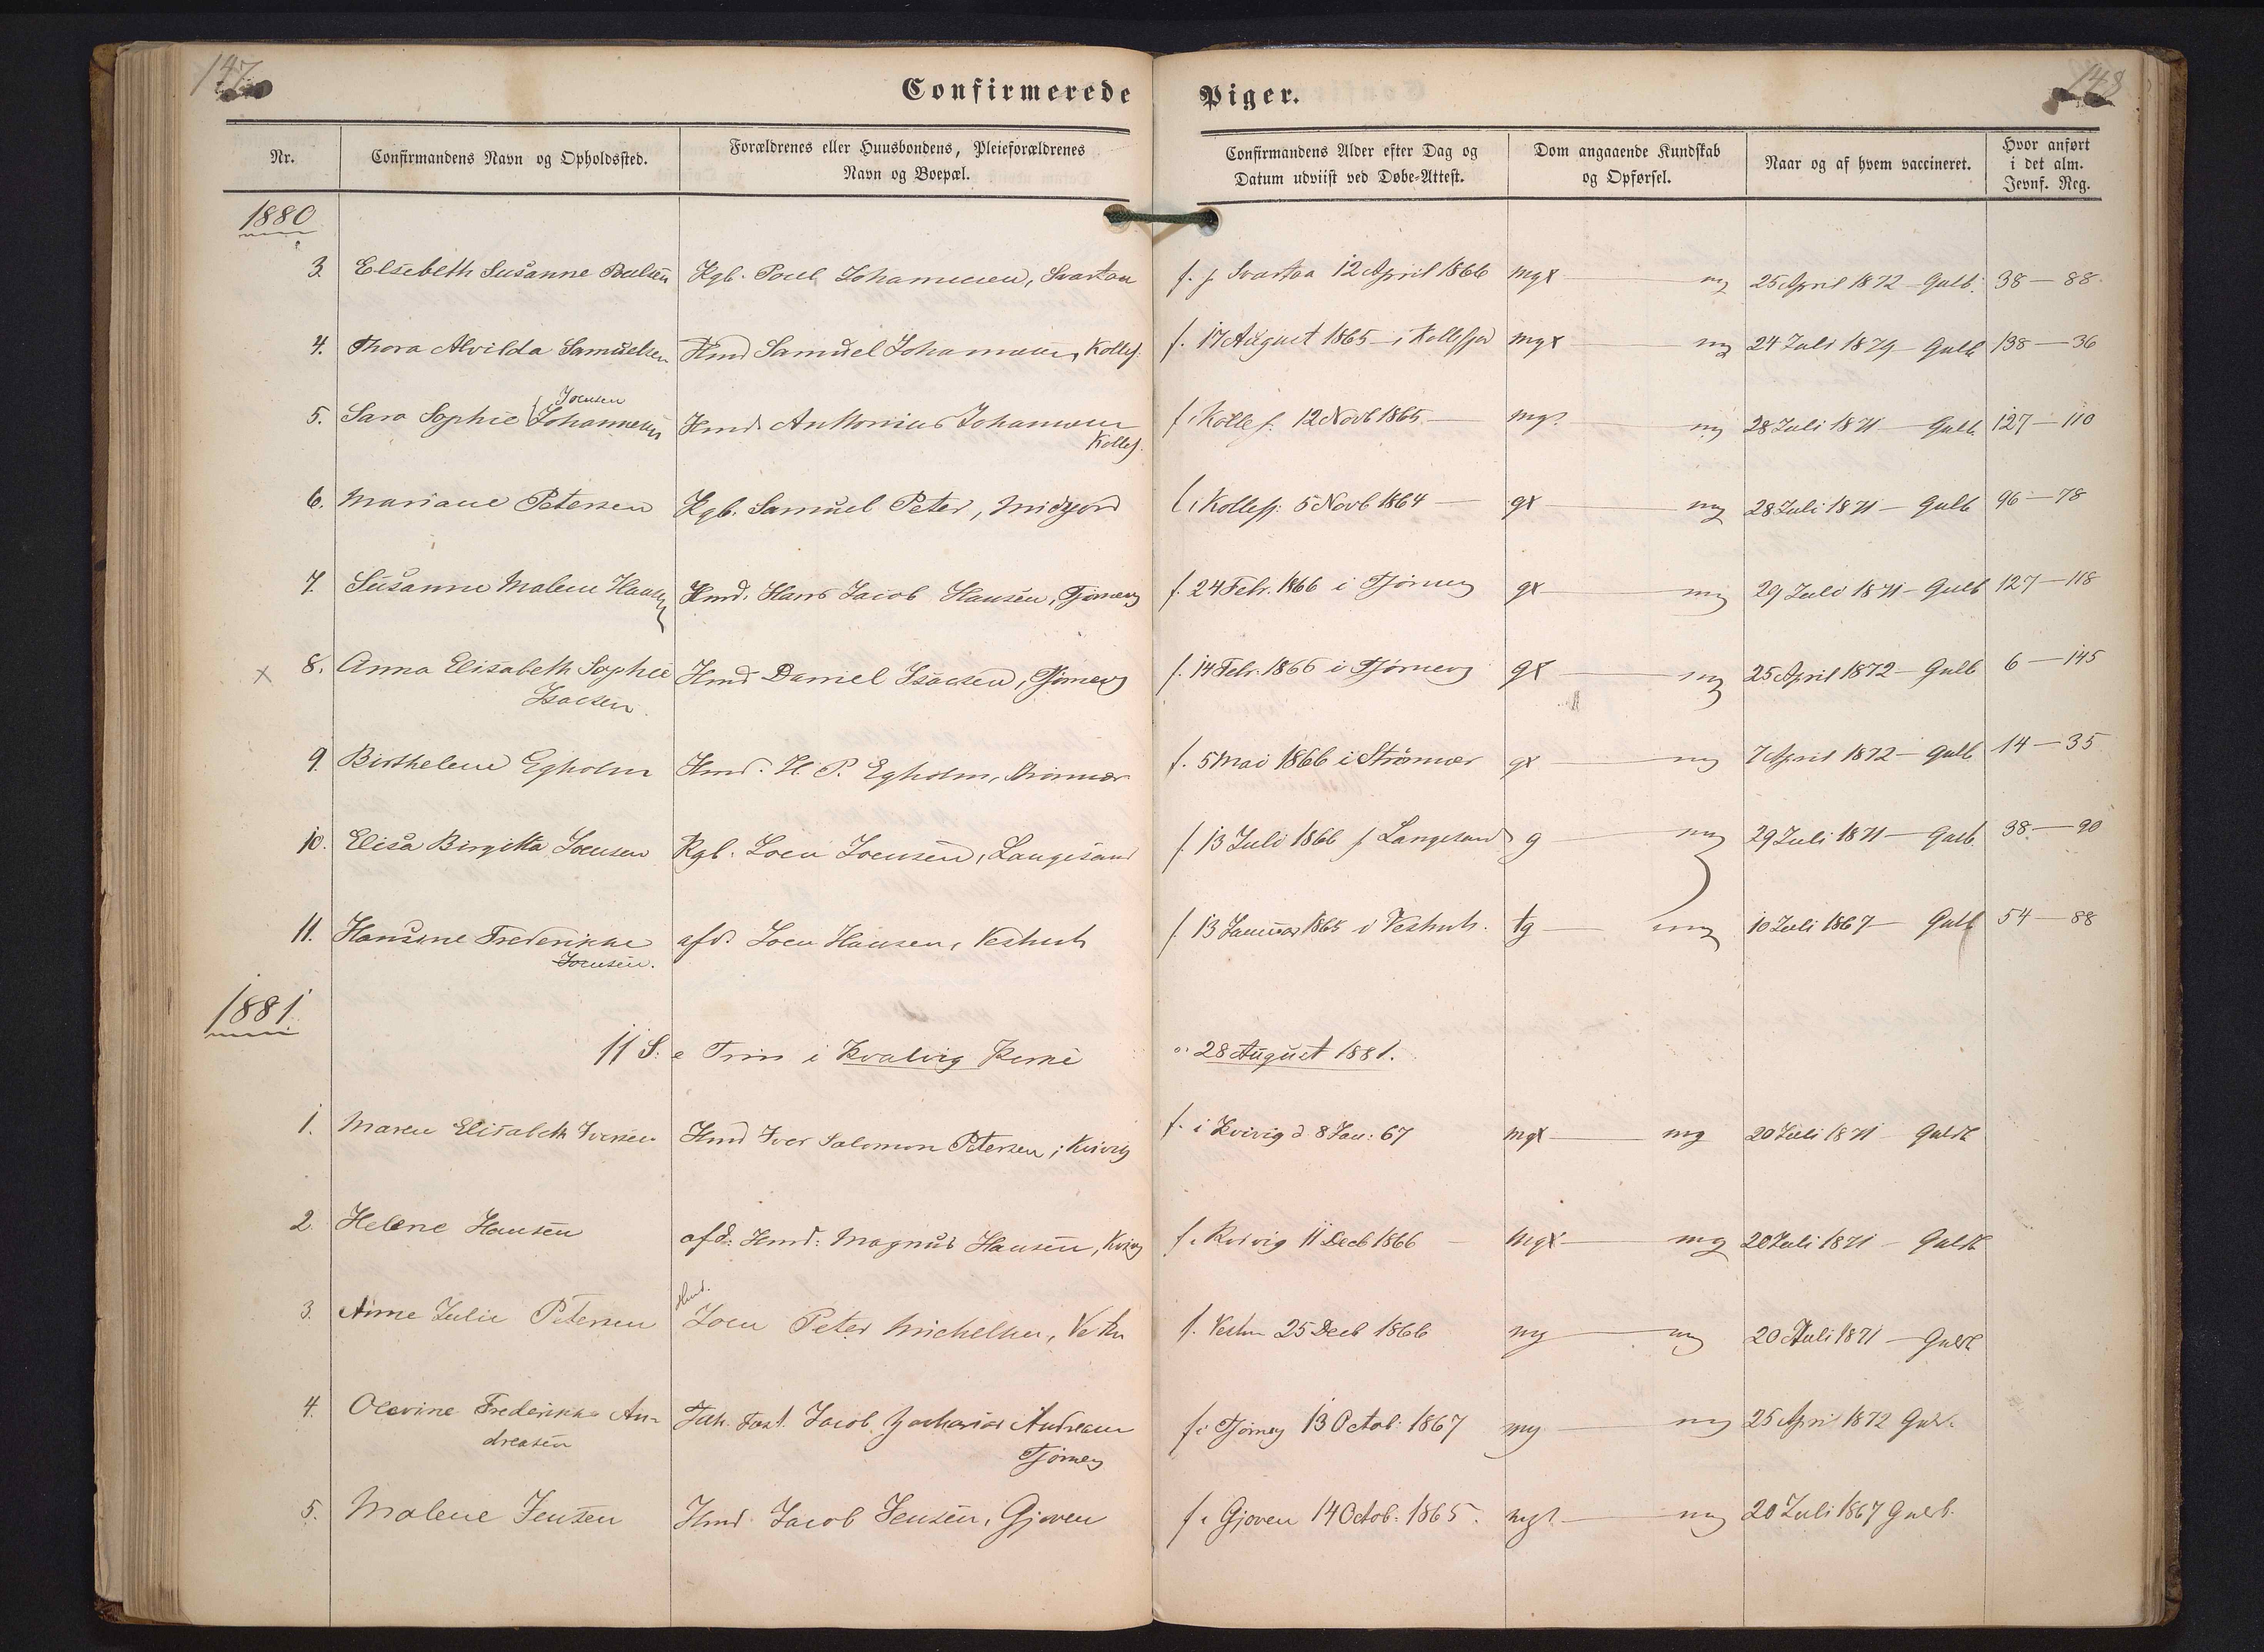 147
148
Confirmerede Piger.
Nr.
Confirmandens Navn og Opholdssted.
Forældrenes eller Huusbondens, Pleieforældrenes
Navn og Boepæl.
Confirmandens Alder efter Dag og
Datum udviist ved Døbe-Attest.
Dom angaaende Kundskab
og Opførsel.
Naar og af hvem vaccineret.
Hvor anført
i det alm.
Jevnf. Reg.
1880
3. Elsebeth Susanne Poulsen Kgb. Poul Johannesen, Svartaa f. p. Svartaa 12 April 1866 mgx — mg 25 April 1872 – Gulb. 38 — 88.
4. Thora Alvilda Samuelsen Hmd Samuel Johannesen, Kollef. f. 17 August 1865 – i Kollefjord mgx — mg 24 Juli 1879 – Gulb 138 — 36
Joensen
5. Sara Sophie Johannesen Hmd. Anthonius Johannesen f. i Kollef. 12 Novb 1865 — mg? — mg 28 Juli 1871 — Gulb. 127 — 110
Kollef.
6. Mariane Petersen Kgb. Samuel Peter, Midgjord f. i Kollefj. 5 Novb 1864 — gx — mg 28 Juli 1871 — Gulb 96 — 78
7. Susanne Malene Hansen Hmd. Hans Jacob Hansen, Tjørnevig f. 24 Febr. 1866 i Tjørnevig gx — mg 29 Juli 1871 – Gulb 127 — 118
x 8. Anna Elisabeth Sophie Hmd Daniel Isacsen, Tjørnevig f. 14 Febr. 1866 i Tjørnevig gx — mg 25 April 1872 – Gulb 6 — 145
Isacsen
9. Birthelene Egholm Hmd. H. P. Egholm, Strømnæs f. 5 Mai 1866 i Strømnæs gx — mg 7 April 1872 – Gulb 14 — 35
10. Elisa Birgitta Joensen Kgb. Joen Joensen, Langesand f. 13 Juli 1866 p. Langesand g — mg 29 Juli 1871 — Gulb. 38 — 90
11. Hansine Frederikke afd. Joen Hansen, Vestmh f. 13 Januar 1865 i Vestmh. tg — mg 10 Juli 1867 — Gulb 54 — 88
Joensen.
1881
11 S. e Trin i Kvalvig Kirke d. 28 August 1881.
1. Maren Elisabeth Iversen Hmd Iver Salomon Petersen, i Kvivig f. i Kvivig d 8 Jan: 67 mgx — mg 20 Juli 1871 – Guldb
2. Helene Hansen afd: Hmd: Magnus Hansen, Kvivig f. i Kvivig 11 Decb 1866 — mgx — mg 20 Juli 1871 – Guldb
Hmd.
3. Anne Julie Petersen Joen Peter Michelsen, Vestm f. Vestm 25 Decb 1866 mg — mg 20 Juli 1871 — Guldb
4. Olevine Frederikke An- Fast. Jacob Zacharias Andreasen f. i Tjørnevig 13 Octob. 1867 mg — mg 25 April 1872 Guld.
dreasen Tjørnevig
5. Malene Jensen Hmd. Jacob Jensen, Gjoven f. i Gjoven 14 Octob. 1865. mg? — mg 20 Juli 1867 Guldb.